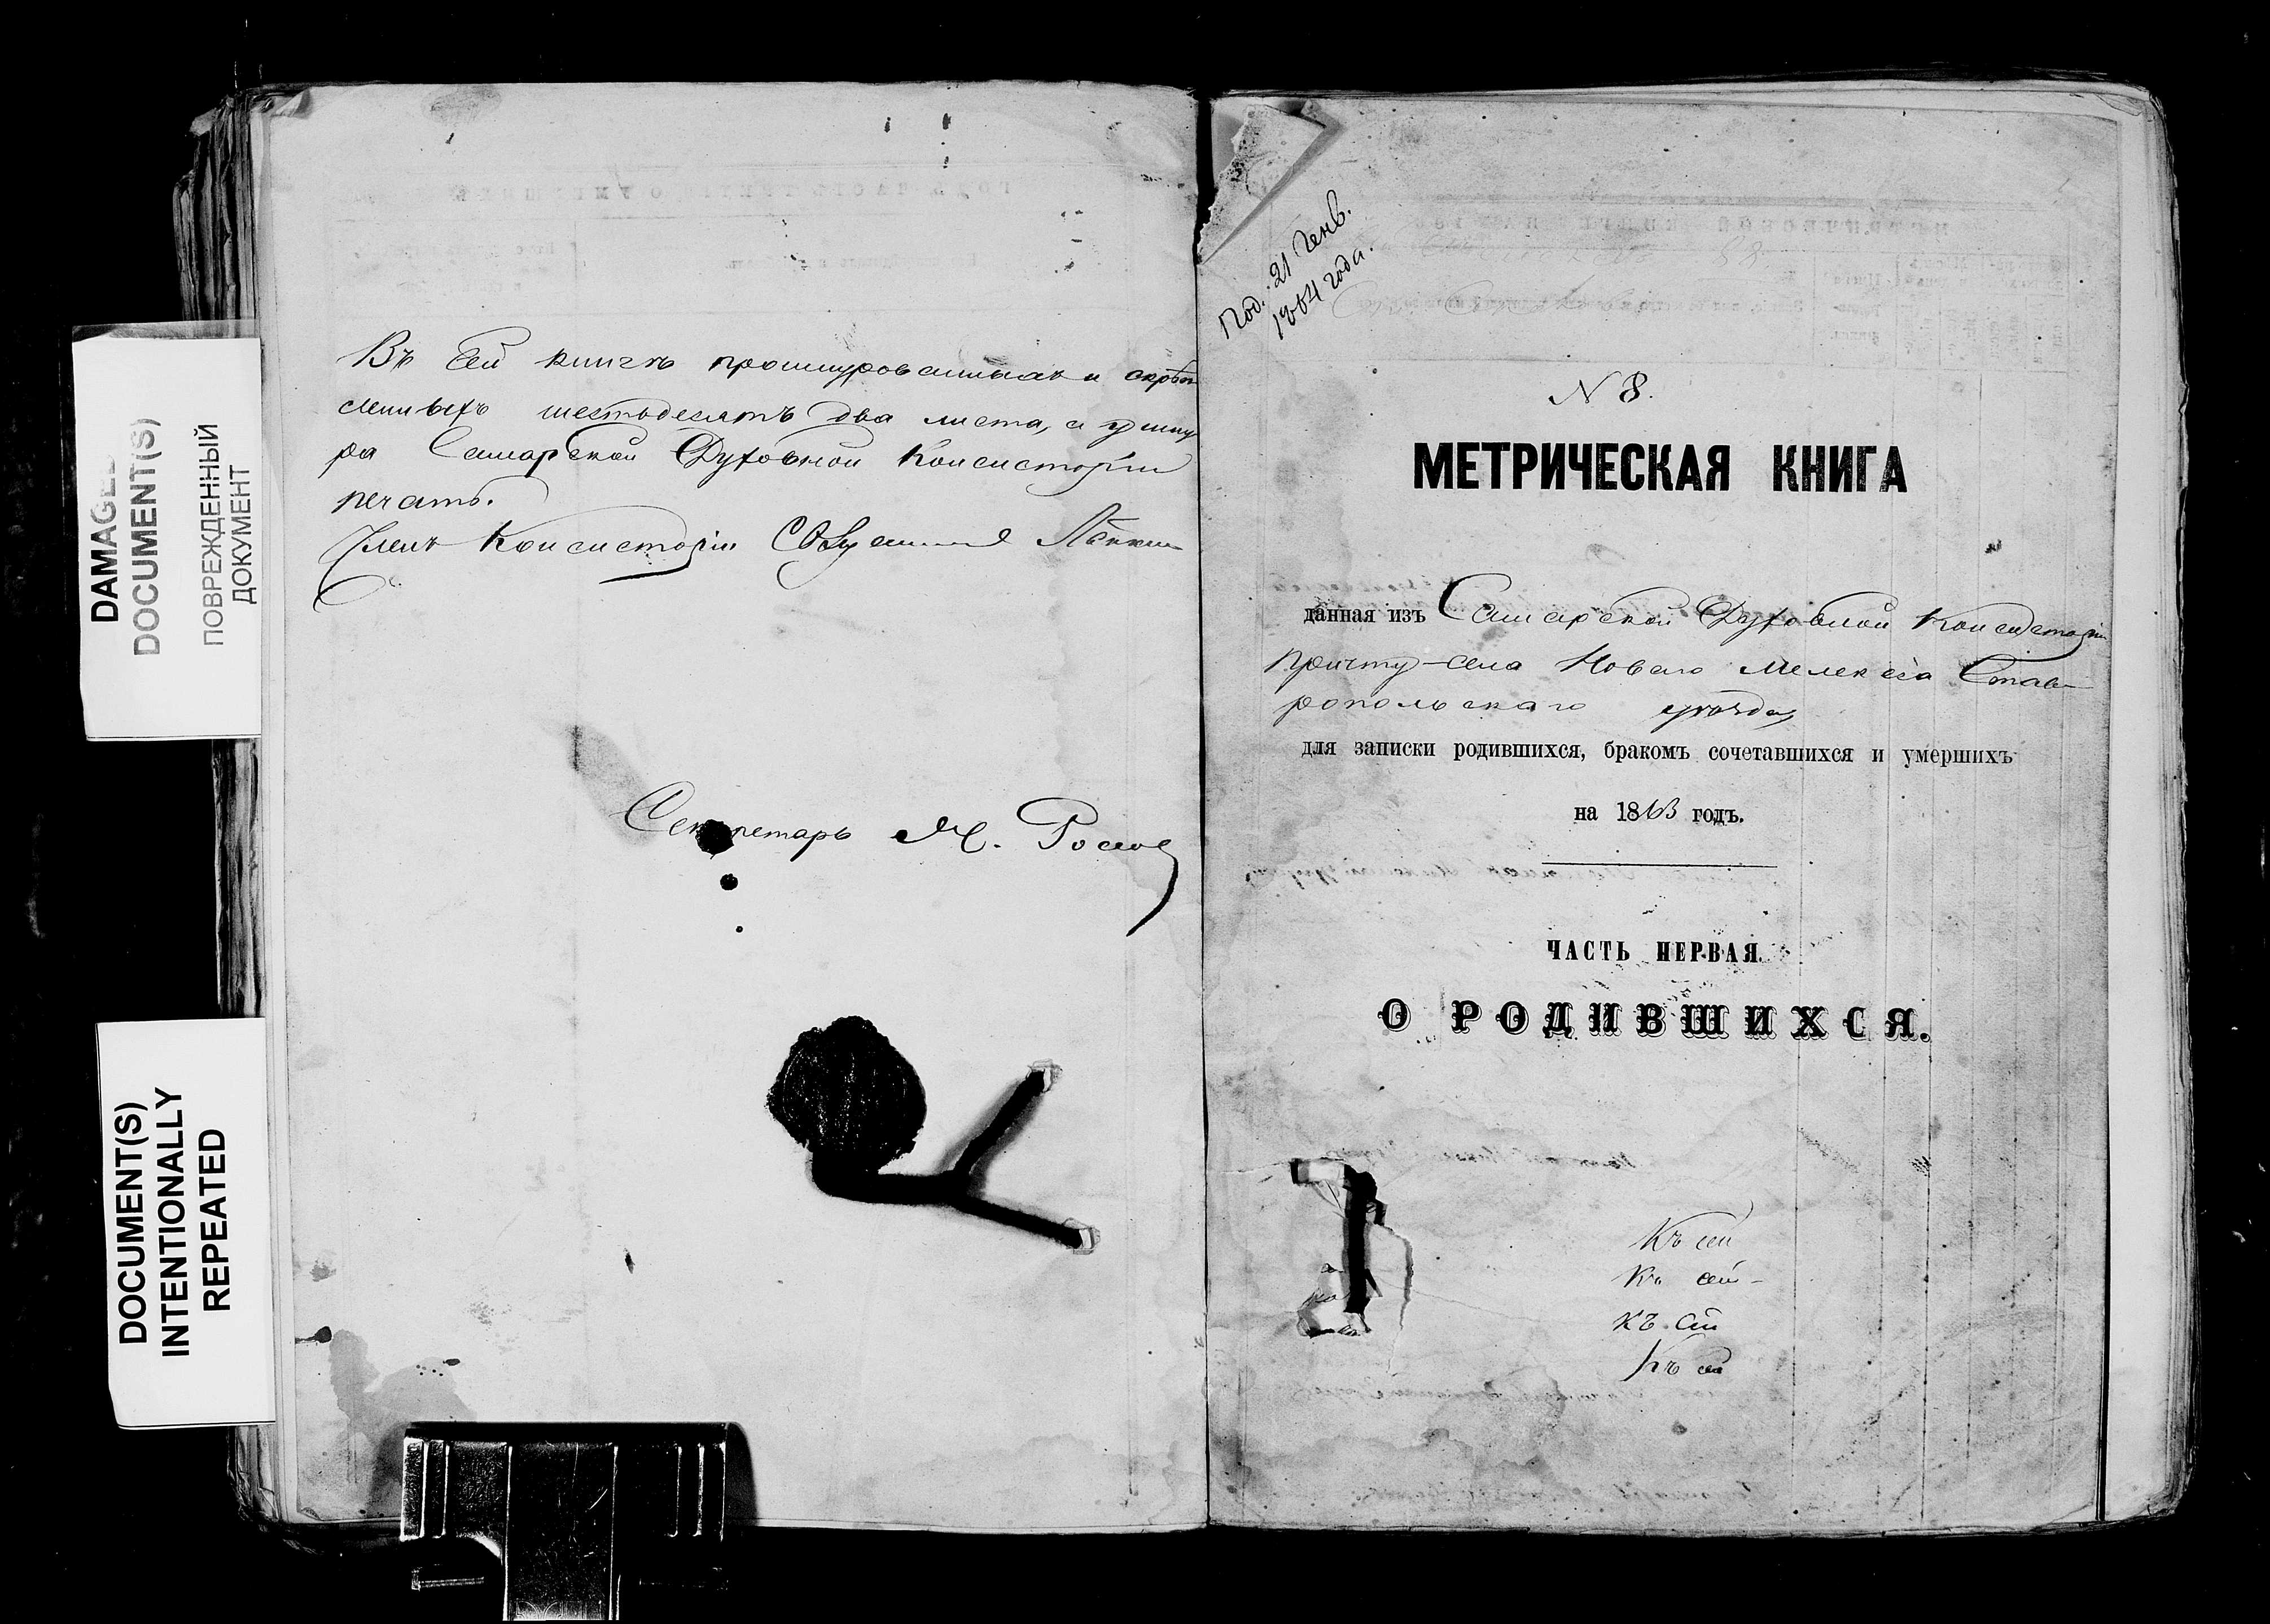 DAMAGED
DOCUMENT(S)
ПОВРЕЖДЕННЫЙ
ДОКУМЕНТ
DOCUMENT(S)
INTENTIONALLY
REPEATED
Въ сей книгѣ прошнурованныхъ и скрѣп
ленныхъ шестьдесятъ два листа, а у шну
ра Самарской Духовной Консисторіи
печать.
Членъ Консисторіи Священникъ
Секретарь М.
Под. 21 Генв.
1864 года.
N 8.
МЕТРИЧЕСКАЯ КНИГА
данная изъ Самарской Духовной Консисторіи
причту села Новаго Мелекеса Став-
ропольскаго уѣзда
для записки родившихся, бракомъ сочетавшихся и умершихъ
на 1863 годъ.
ЧАСТЬ ПЕРВАЯ.
О РОДИВШИХСЯ.
Къ сей
Къ сей
къ сей
Къ сей